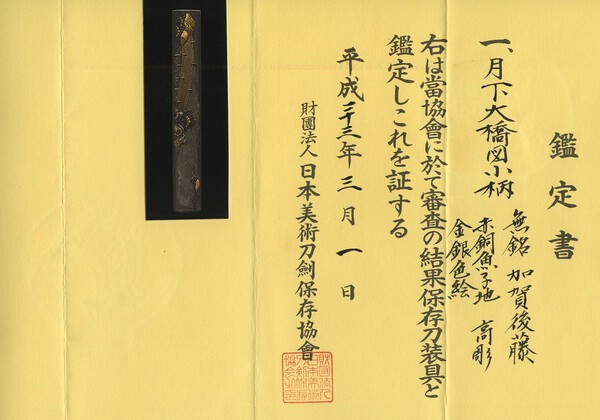 鑑定書
一、月下大橋図小柄
無銘 加賀後藤
赤銅魚子地 高彫
金銀色絵
右は當協會に於て審査の結果保存刀装具と
鑑定しこれを証する
平成二十三年三月一日
財團法人 日本美術刀劍保存協會